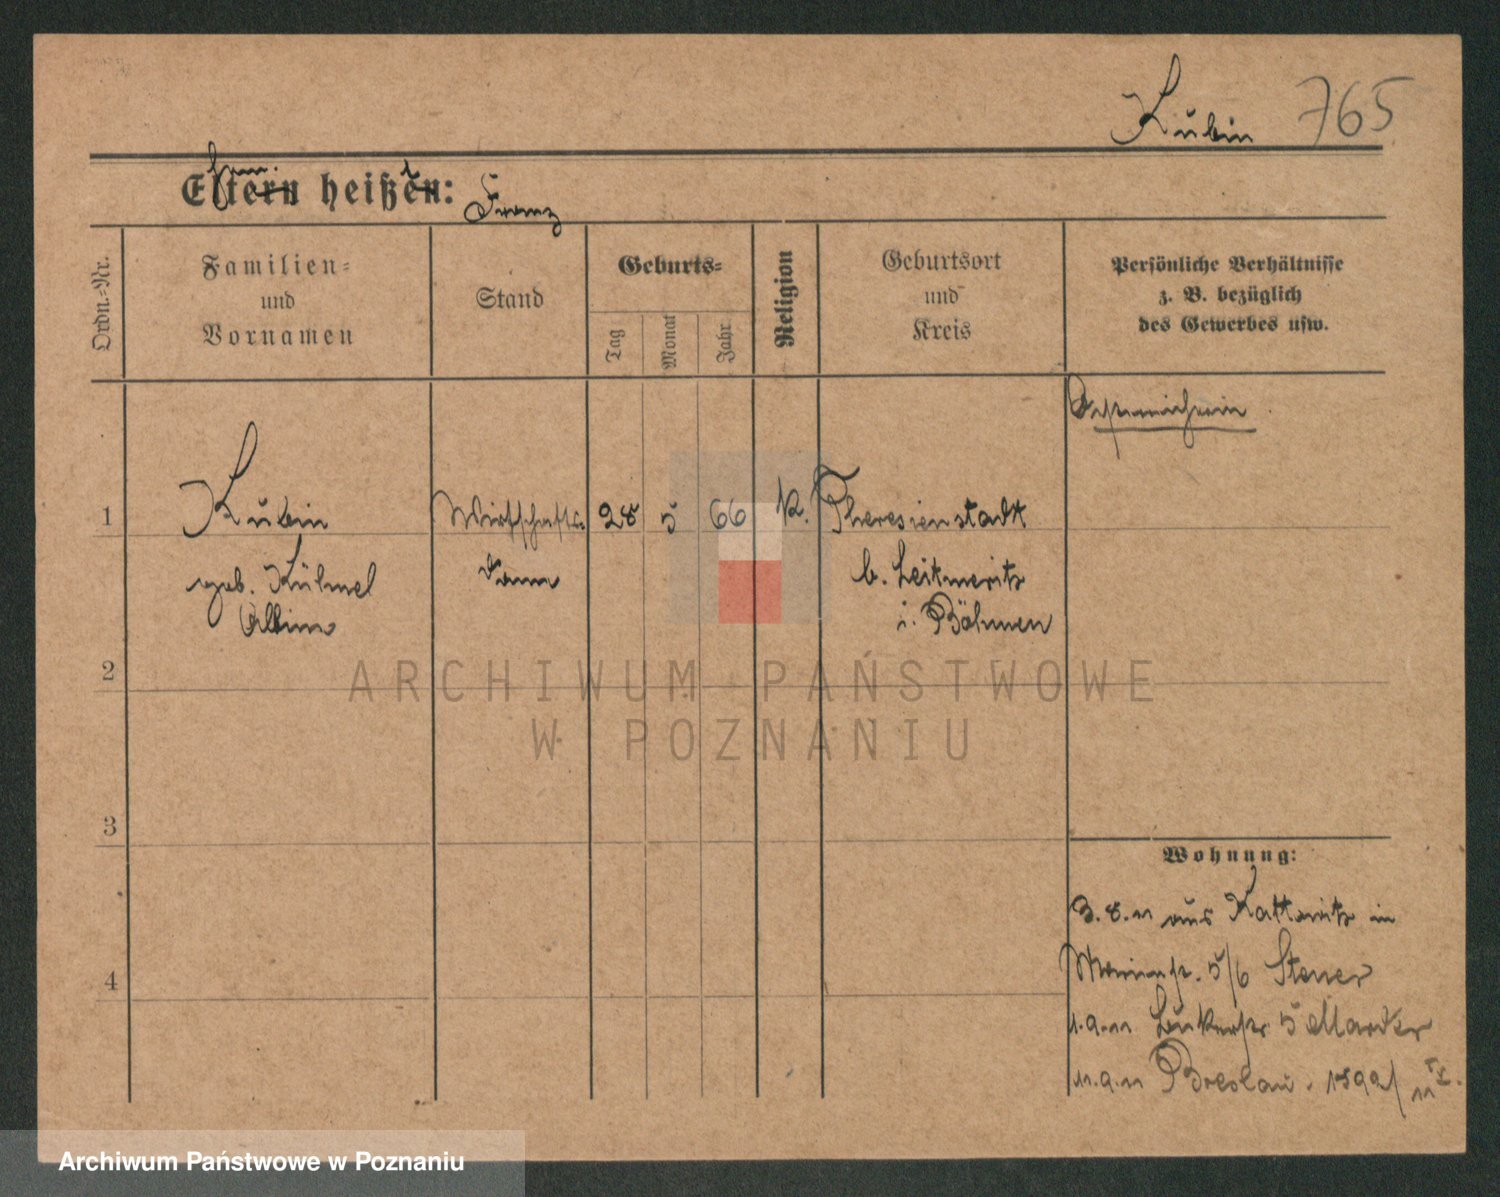 Kubin 765
Eltern heißen: Franz
Ordn.-Nr.
Familien-
und
Vornamen
Stand
Geburts-
Tag
Monat
Jahr
Religion
Geburtsort
und
Kreis
Persönliche Verhältnisse
z. B. bezüglich
des Gewerbes usw.
1 Kubin Wirtschafts- 28 5 66 K. Theresienstadt
geb. Kühnel b. Leitmeritz
Albine i. Böhmen
2
3
4
Wohnung:
3.8.11 aus Kattowitz in
5/6 Stener
1.9.11 5
11.9.11 Breslau. 1592/11
ARCHIWUM PAŃSTWOWE
W POZNANIU
Archiwum Państwowe w Poznaniu